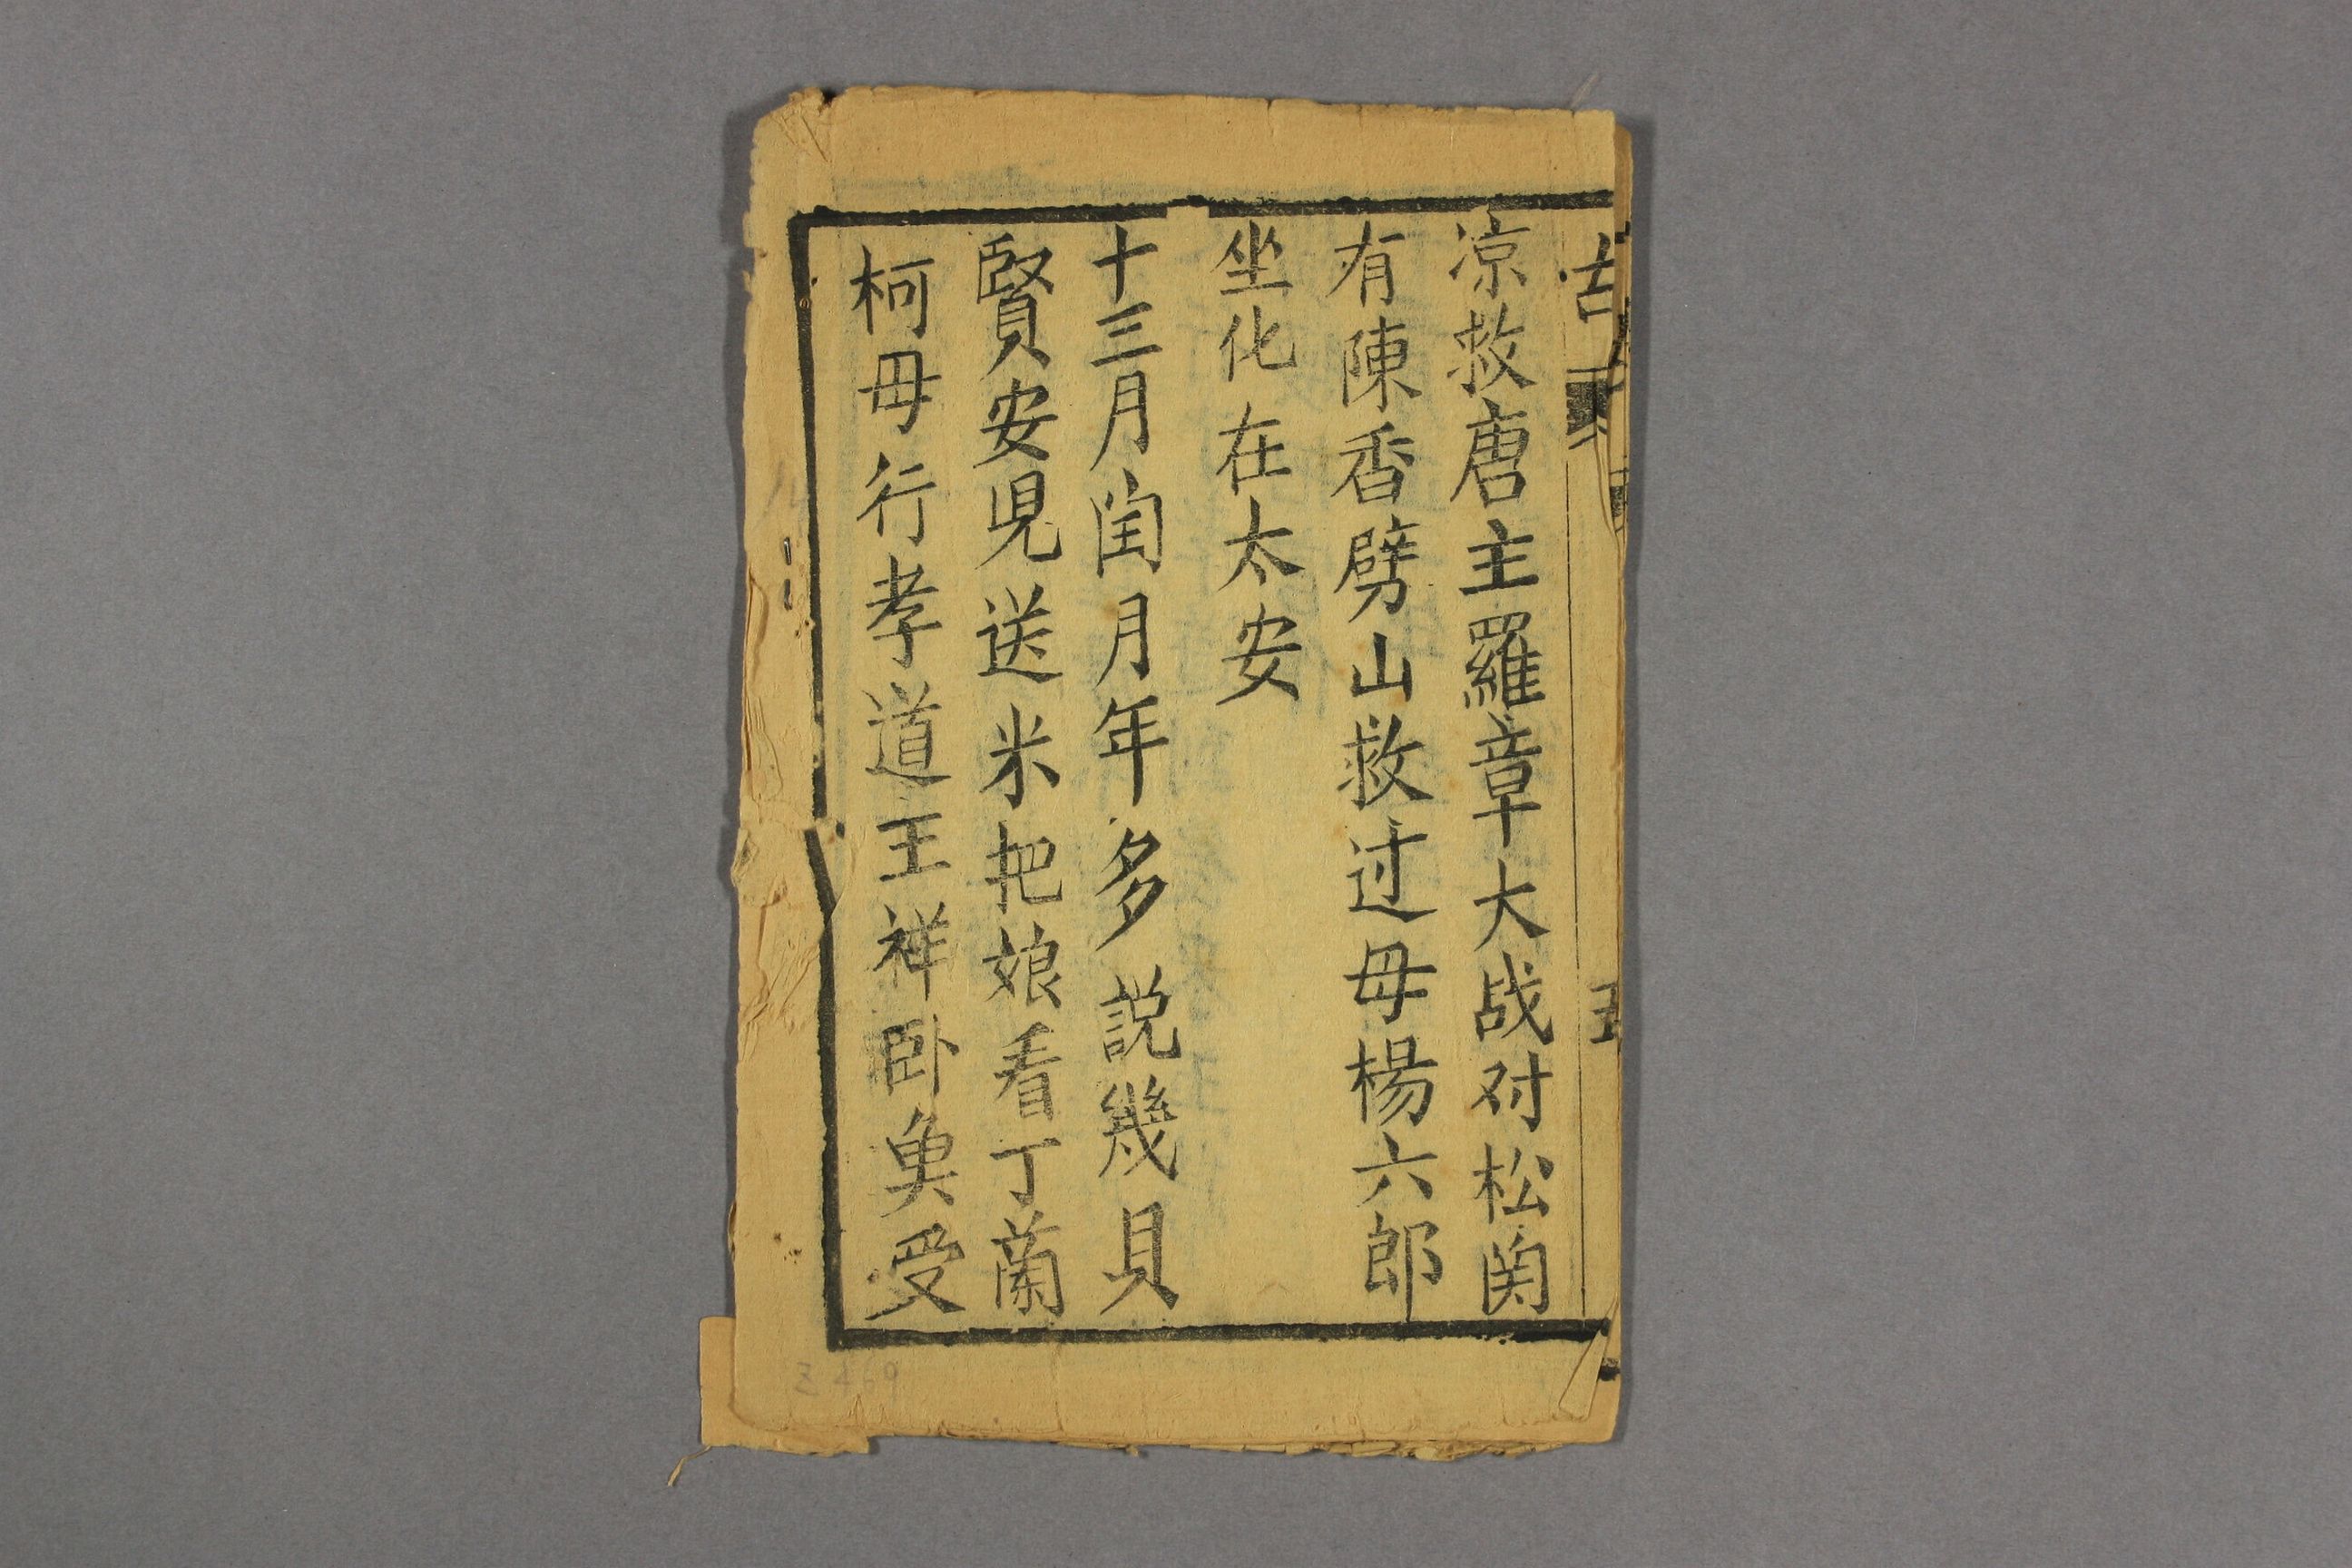 古
五
凉救唐主羅章大战对松関
有陳香劈山救过母楊六郎
坐化在太安
十三月閏月年多説幾貝
賢安児送米把娘看丁蘭
柯母行孝道王祥卧魚受
Z 469